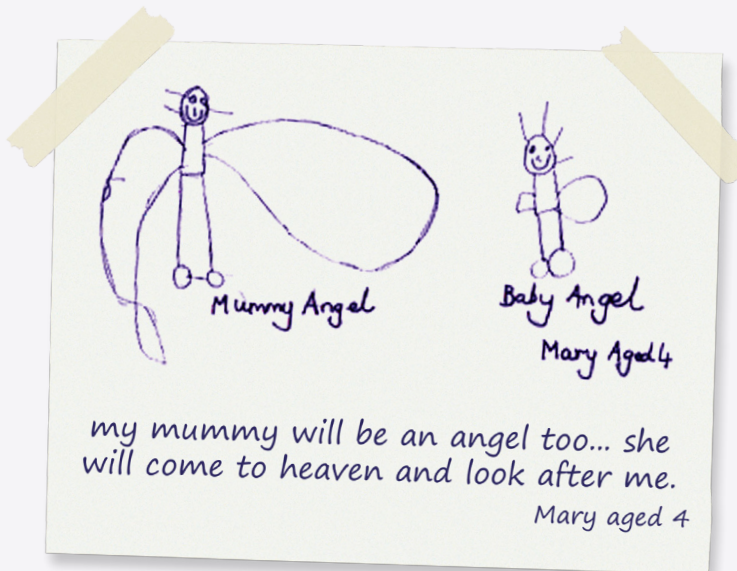 Mummy Angel
Baby Angel
Mary Aged 4
my mummy will be an angel too... she
will come to heaven and look after me.
Mary aged 4